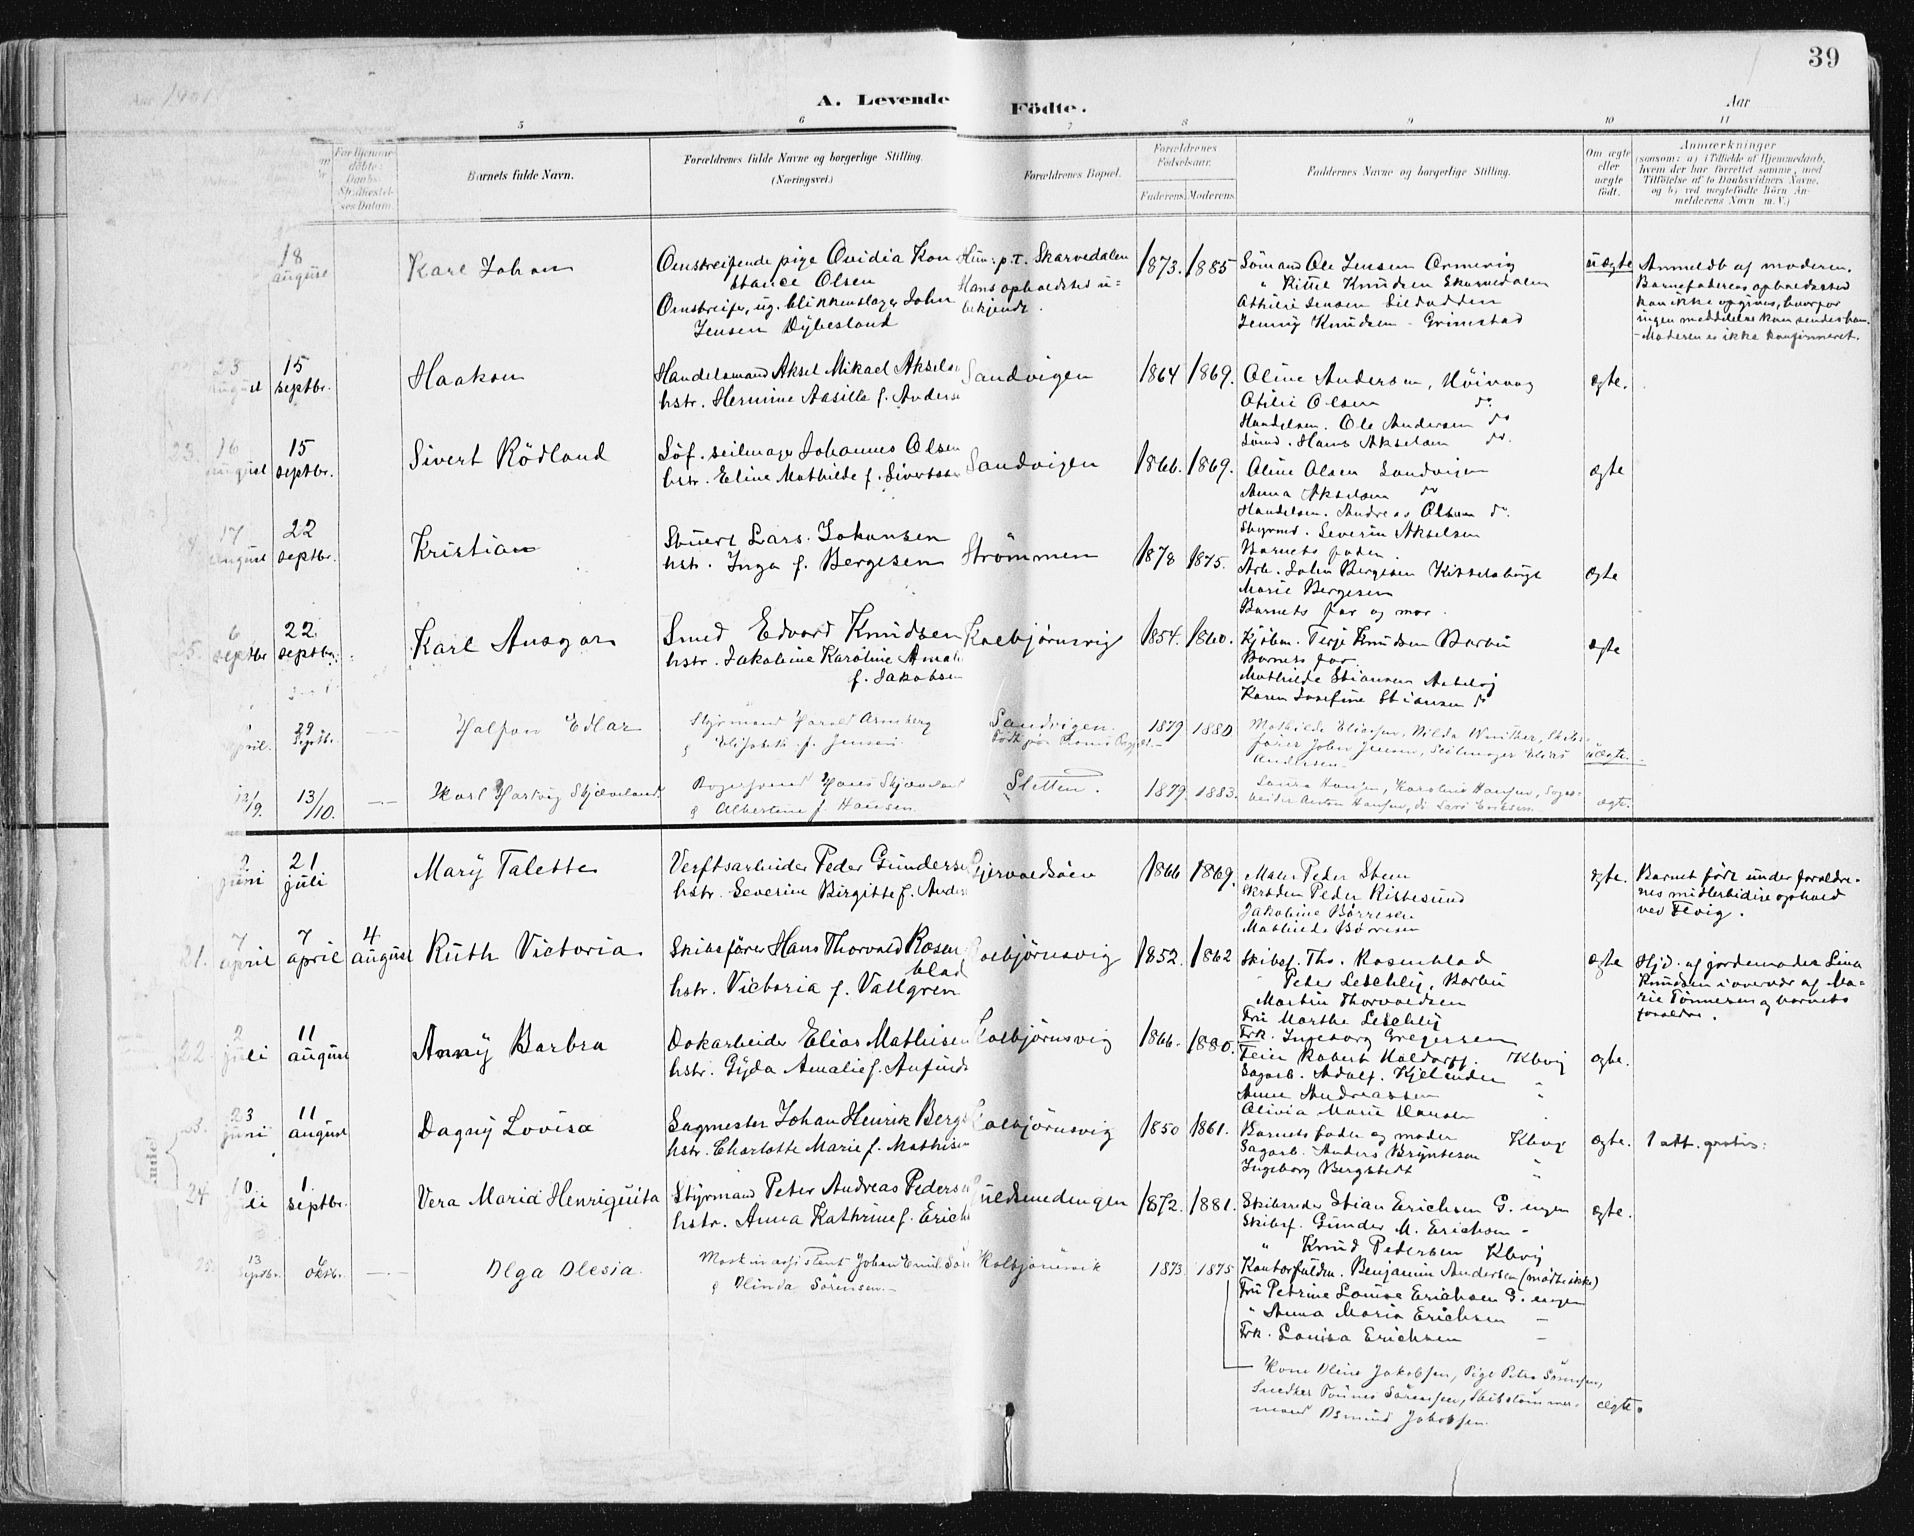 39
Aar 1901
A. Levende Födte.
Aar
5 6 7 8 9 10 11
For Hjemmedöbte: Daabs-Stadfæstelses Datum.
Barnets fulde Navn.
Forældrenes fulde Navne og borgerlige Stilling.
(Næringsvei.)
Forældrenes Bopæl.
Forældrenes Fødselsaar.
Faderens. Moderens.
Faddernes Navne og borgerlige Stilling.
Om ægte eller uægte födt.
Anmærkninger
(saasom: a) i Tilfælde af Hjemmedaab,
hvem der har forrettet samme, med
Tilföielse af to Daabsvidners Navne,
og b) ved uægtefödte Börn Anmelderens Navn m. V.)
18 august
Karl Johan
Omstreifende pige Ovidia Kon
stance Olsen
Omstreifer, ug. blikkenslager John
Jensen Dybesland
Hun: p.t. Skarvedalen
Hans opholdsted u-
bekjendt.
1873. 1885
Sömand Ole Jensen Ormevig
" Kittel Knudsen Skarvedalen
Othilie Jensen Sildodden
Jenny Knudsen - Grimstad
uægte
Anmeldt af moderen.
Barnefaderens opholdssted
kan ikke opgives, hvorfor
ingen meddelelse kan sendes ham.
- Moderen er ikke konfirmeret.
23 august 15 septbr.
Haakon
Handelsmand Aksel Mikael Akselse
hstr. Hermine Aasille f. Anders
Sandvigen
1864 1869.
Oline Andersen, Höivaag
Otilie Olsen do
Handelsm. Ole Andersen do
Sömd. Hans Akselsen do.
ægte.
23. 16 august 15 septbr.
Sivert Rödland
Söf. seilmager Johannes Olsen
hstr. Eline Mathilde f. Sivertsen
Sandvigen
1866. 1869.
Oline Olsen Sandvigen
Anna Akselsen do
Handelsm. Andreas Olsen do.
Styrmd. Severin Akselsen
ægte
24. 17 august 22 septbr.
Kristian
Stuert Lars Johansen
hstr. Inga f. Bergesen
Strömmen
1878 1875.
Barnets fader.
Arb. John Bergesen Kittelsbugt
Marie Bergesen
Barnets far og mor.
ægte
25. 6 septbr 22 septbr.
Karl Ansgar
Smed Edvard Knudsen
hstr. Jakobine Karoline Amal
f. Jakobsen
Kolbjørnsvig
1854. 1860.
Kjöbm. Terje Knudsen Barbu
Barnets far.
Mathilde Stiansen
Karen Josefine Stiansen do
ægte
april. 29 Septb.
Halfdan Edlar
Styrmand Harald Arnberg
g Elisabeth f. Jensen.
Sandvigen.
1879 1880
Mathilde Eliassen, Hilda Winther, Skibs-
förer John Jensen, Seilmager Elias
Andersen
uægte.
12/9. 13/10.
Karl Hartvig Skjæveland
Hans Skjæveland
g Albertine f. Hansen
Sletten.
1879 1883.
Laura Hansen, Karoline Hansen,
Anton Hansen, do Lars Eriksen
ægt.
juni 21 juli
Mary Talette
Verftsarbeider Peder Gunderse
hstr. Severine Birgitte f. Ander
Gjervoldsöen
1866 1869.
Maler Peder Steen
Skrædder Peder Ribbesund
Jakobine Börresen
Mathilde Börresen
ægte.
Barnet födt under forældre-
nes midlertidige ophold
ved Fevig.
21. 7 april 7 april 4 august
Ruth Victoria
Skibsförer Hans Thorvald Rosen
blad
hstr. Victoria f. Vallgren
Kolbjørnsvig
1852. 1862
Skibsf. Ths. Rosenblad
Peter Leschly, Barbu
Martin Thorvaldsen
Fru Marthe Leschly
Frk. Ingeborg Gregersen
ægte
Hjd. af jordemoder Lina
Knudsen i overvær af Ma-
rie Tönnesen og barnets
forældre.
22. 2 juli 11 august
Anny Barbra
Dokarbeider Elias Mathisen
hstr. Gyda Amalie f. Anfinds
Kolbjørnsvig
1866. 1880.
Feier Robert Holdorff. Kbvig
Sagarb. Adolf. Kjellander "
Anne Andreassen "
Olivia Marie Hansen "
ægte.
23. 23 juni 11 august
Dagny Lovisa
Sagmester Johan Henrik Bergs
hstr. Charlotte Marie f. Mathisen
Kolbjørnsvig
1850 1861.
Barnets fader og moder Kbvig
Sagarb. Anders Bryntesen "
Ingeborg Bergstedt "
ægte.
1 att. gratis.
24. 10 juli 1 septbr.
Vera Maria Henriquita
Styrmand Peter Andreas Peders
hstr. Anna Kathrine f. Erich
Guldsmedengen
1872. 1881.
Skibsreder Stian Erichsen G. engen
Skibsf. Gunder M. Erichsen "
" Knud Pedersen Kbvig
Kontorfuldm. Benjamin Andersen (mödte ikke)
Fru Petrine Louise Erichsen G. engen
" Anna Maria Erichsen -
Frk. Louisa Erichsen -
ægte.
25. 13 septbr. 6 oktb.
Olga Olesia.
Maskinassistent Johan Emil Sör
g Olinda Sörensen.
Kolbjørnsvik
1873 1875
Kone Oline Jakobsen, Pige Petra Sörensen,
Snedker Tönnes Sörensen, Skibstömmer-
mand Osmund Jakobsen.
ægte.